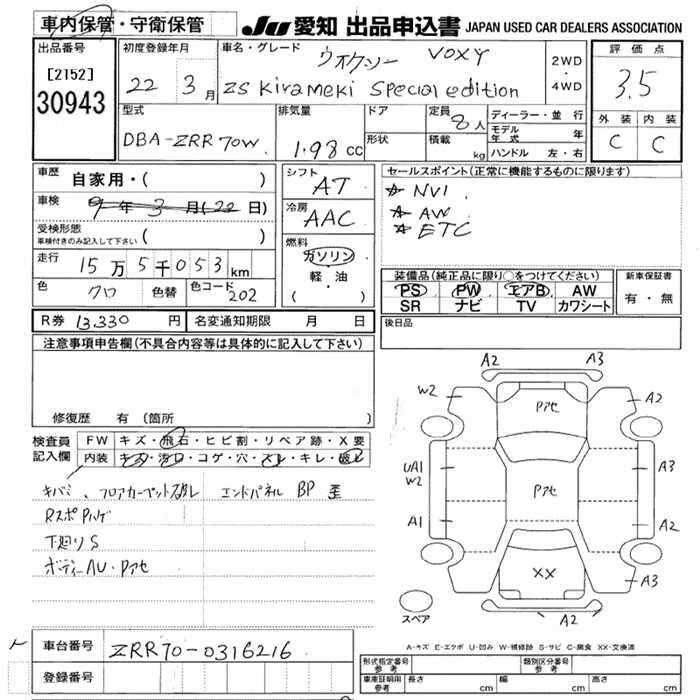 車内保管・守衛保管 JU愛知 出品申込書 JAPAN USED CAR DEALERS ASSOCIATION
出品番号 初度登録年月 車名・グレード ウオクソー VOXY 2WD ・ 4WD 評価点
[2152] 22 3月 ZS Kirameki Special edition 3.5
30943 型式 排気量 ドア 定員 8人 ディーラー・並行 外装 内装
DBA-ZRR70W 1.98cc 形状 積載 kg モデル年式 年 C C
ハンドル 左・右
車歴 自家用・( ) シフト AT セールスポイント(正常に機能するものに限ります)
車検 9年3月(22日) 冷房 AAC ☆ NVI
受検形態 ( ) ☆ AW
車検付きのみ記入して下さい 燃料 ☆ ETC
走行 15万5千053km ガソリン
色 クロ 色替 色コード 202 軽・油 ( )
装備品(純正品に限り○をつけてください) 新車保証書
PS PW エアB AW 有・無
SR ナビ TV カワシート
R券 13,330円 名変通知期限 月 日 後日品
注意事項申告欄(不具合内容等は具体的に記入して下さい)
修復歴 有 (箇所
検査員記入欄 FW キズ・飛石・ヒビ割・リペア跡・X要
内装 キズ・汚レ・コゲ・穴・スレ・キレ・破レ
キバミ、フロアカーペット破レ エンドパネル BP 歪
Rスポ Pハゲ
下廻りS
ボディーAU・Pアセ
A2 A3
W2 Pアセ A2
UA1 A3
W2 Pアセ
A1 A2
XX A3
スペア A2
A-キズ E-エクボ U-凹み W-補修跡 S-サビ C-腐食 XX-交換済
車台番号 ZRR70-0316216
登録番号
形式指定番号 参考 類別区分番号 参考
車庫証明用 参考 長さ cm 幅 cm 高さ cm